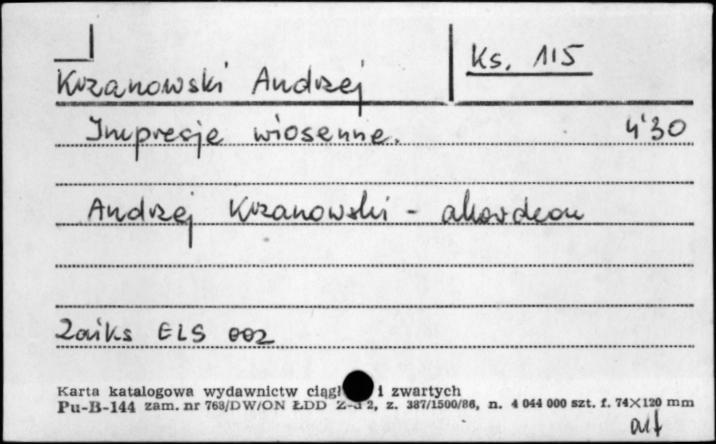 Ks. 115
Krzanowski Andrzej
Impresje wiosenne. 4'30
Andrzej Krzanowski - akordeon
Zaiks ELS 002
Karta katalogowa wydawnictw ciągł i zwartych
Pu-B-144 zam. nr 768/DW/ON ŁDD 2, z. 387/1500/86, n. 4 044 000 szt. f. 74×120 mm